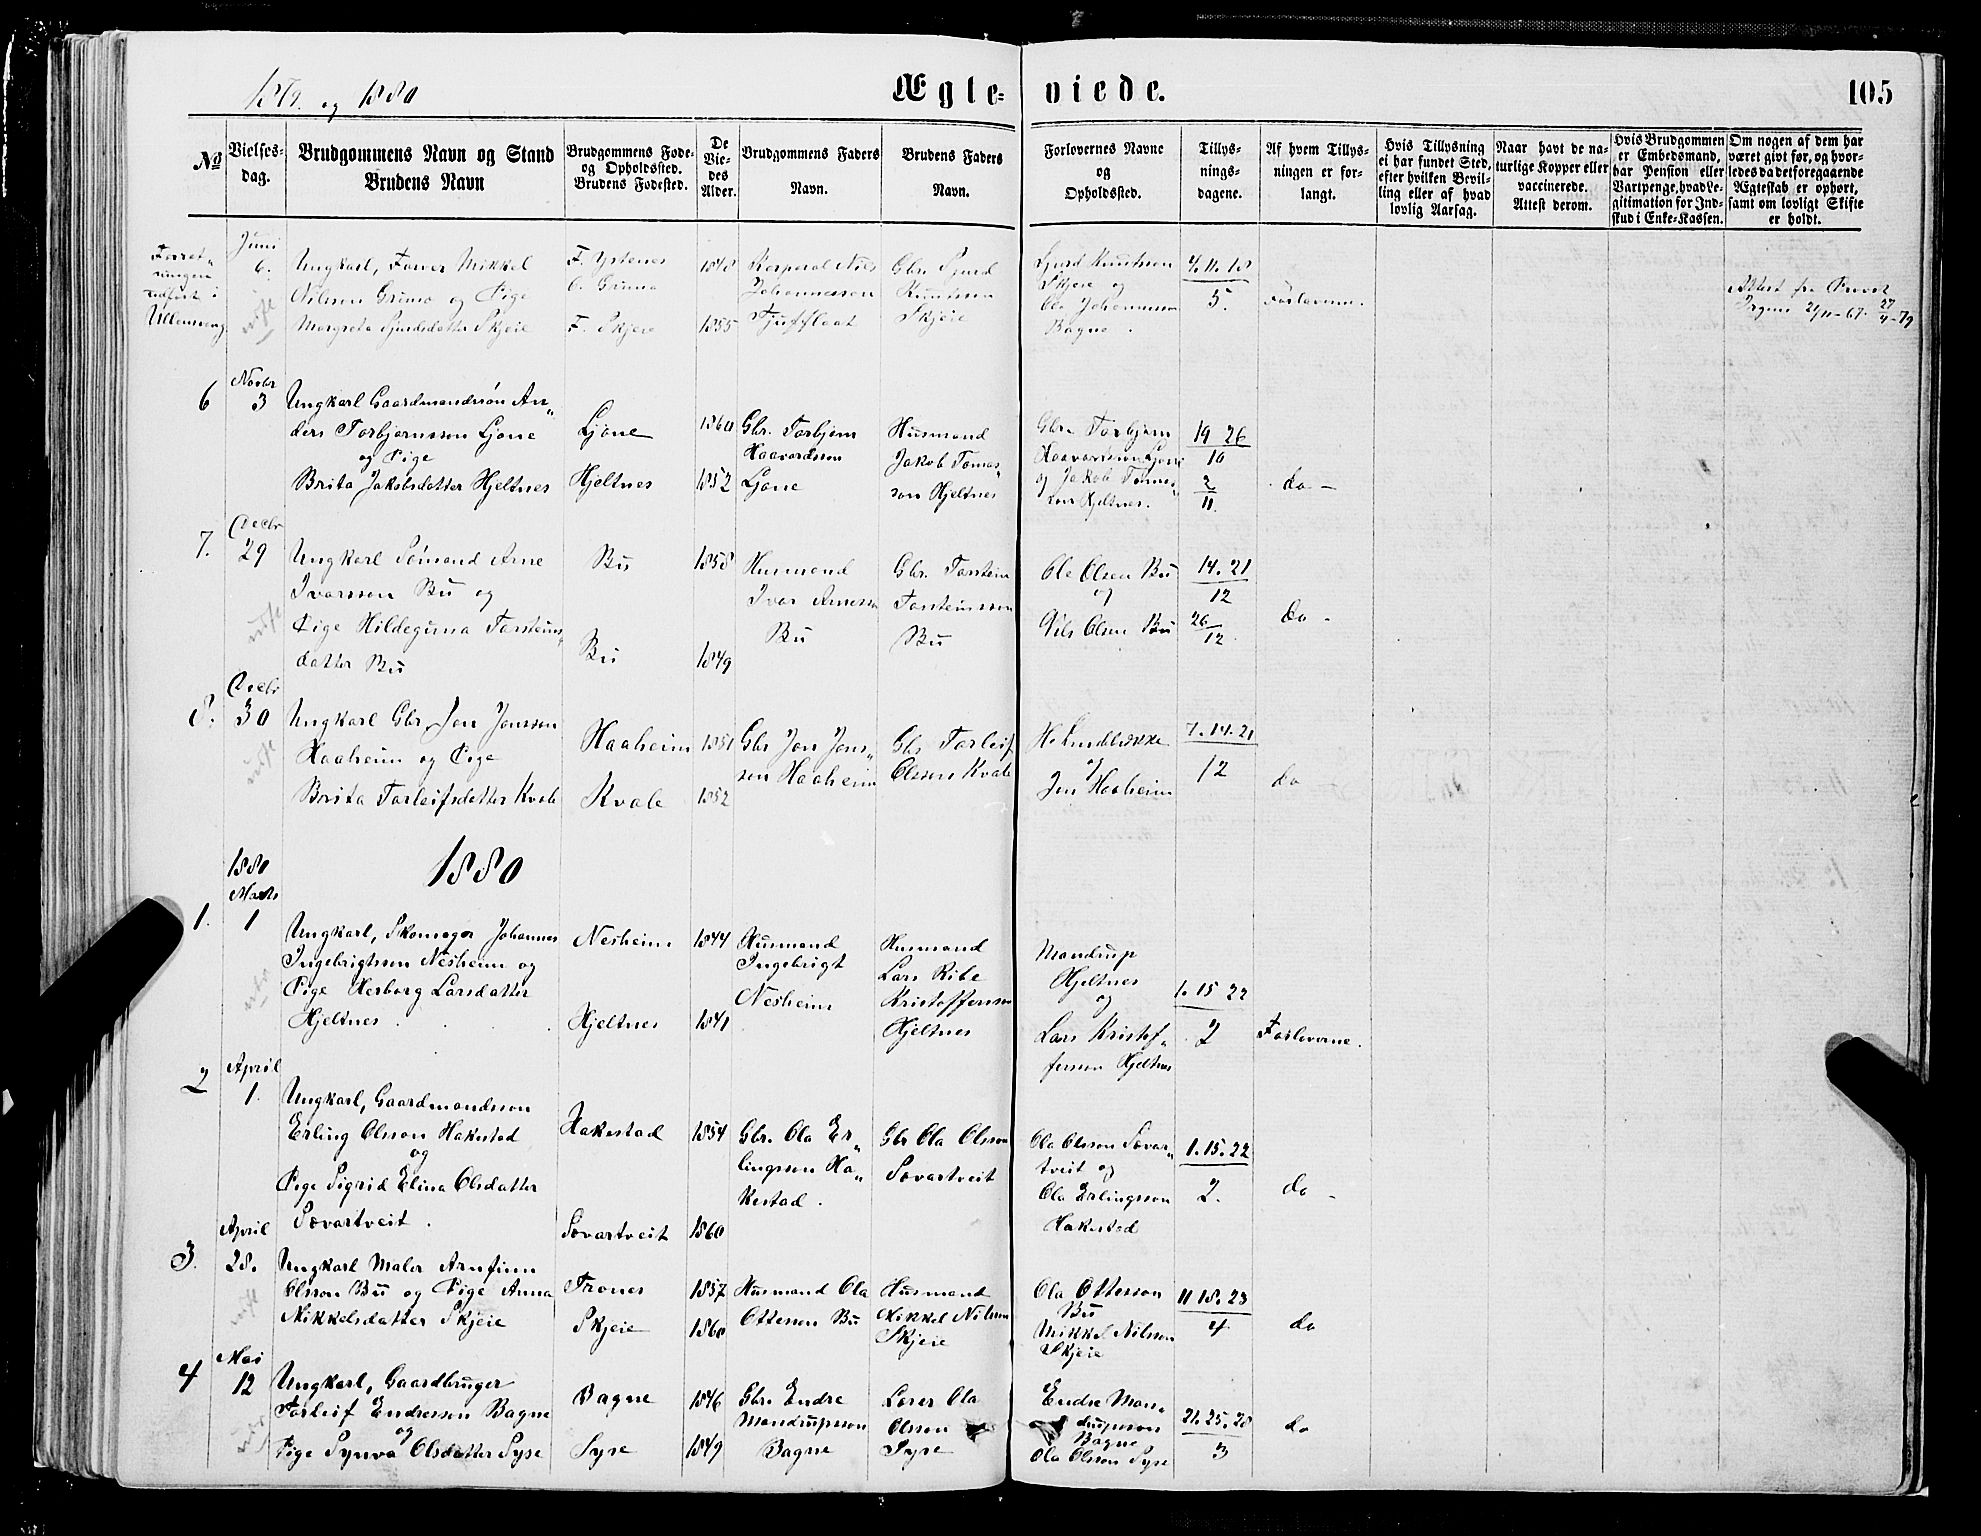 1879. og 1880
Ægte-viede.
105
No
Vielses-dag.
Brudgommens Navn og Stand
Brudens Navn
Brudgommens Føde-
og Opholdssted.
Brudens Fødested.
De
Vie-
des
Alder.
Brudgommens Faders
Navn.
Brudens Faders
Navn.
Forlovernes Navne
og
Opholdssted.
Tillys-
nings-
dagene.
Af hvem Tillys-
ningen er for-
langt.
Hvis Tillysning
ei har fundet Sted,
efter hvilken Bevil-
ling eller af hvad
lovlig Aarsag.
Naar havt de na-
turlige Kopper eller
vaccinerede.
Attest derom.
Hvis Brudgommen
er Embedsmand,
har Pension eller
Vartpenge, hvad Le-
gitimation for Ind-
skud i Enke-Kassen.
Om nogen af dem har
været givt før, og hvor-
ledes da det foregaaende
Ægteskab er ophørt,
samt om lovligt Skifte
er holdt.
Juni
6.
Ungkarl, Farver Mikkel
Nilsen Grimo og Pige
Margreta Sjurdsdatter Skjeie
F. Ystenes
b. Grimo
F. Skjeie
1848
1855
Korporal Nils
Johannesson
Gbr. Sjurd
Knutsson
Skjeie
Sjurd Knutsson
Skjeie og
Ola Johannesson
Bagne.
4. 11. 18
5.
Forloverne.
Attest fra Provst
6
Novbr
3
Ungkarl Gaardmandssøn An-
ders Torbjørnsson Ljone
og Pige
Brita Jakobsdatter Hjeltnes
Ljone
Hjeltnes
1860
1852
Gbr. Torbjørn
Haavardsson
Ljone
Husmand
Jakob Tomas-
son Hjeltnes
Gbr. Torbjørn
Haavardsson Ljone
og Jakob Tomas-
son Hjeltnes.
19 26
10
2
11.
do -
7.
Decbr
29
Ungkarl Sømand Arne
Ivarsson Bu og
Pige Hildeguna Torsteins-
datter Bu
Bu
Bu
1858
1849
Husmand
Ivar Arnesson
Bu
Gbr. Torstein
Torsteinsson
Bu
Ole Olsen Bu
og
Nils Olsen Bu
14. 21
12
26
12.
do -
8.
Decbr
30
Ungkarl Gbr. Jon Jonsson
Haaheim og Pige
Brita Torleifsdatter Kvale
Haaheim
Kvale
1851
1852
Gbr Jon Jons-
son Haaheim
Gbr Torleif
Olsson Kvale
og
Jon Haaheim
7. 14. 21
12
do
1880
1880
Marts
1.
1
Ungkarl, Skomager Johannes
Ingebrigtsen Nesheim og
Pige Herborg Larsdatter
Hjeltnes.
Nesheim
Hjeltnes
1844
1841
Husmand
Ingebrigt
Nesheim
Husmand
Lars Ribe
Kristoffersson
Hjeltnes
Mandrup
Hjeltnes
og
Lars Kristof-
ferson Hjeltnes
1. 15 22
2
Forloverne.
2
April
1.
Ungkarl, Gaardmandsson
Erling Olsson Hakestad
og
Pige Sigrid Elina Olsdatter
Sovartveit.
Hakestad
Sovartveit
1854
1860
Gbr. Ola Er-
lingsson Ha-
kestad.
Gbr Ola Olsson
Sovartveit
Ola Olsson Sovar-
tveit og
Ola Erlingsson
Hakestad
1. 15. 22
2.
do -
3.
April
28.
Ungkarl Maler Arnfinn
Olsson Bu og Pige Anna
Mikkelsdatter Skjeie
Trones
Skjeie
1857
1860
Husmand Ola
Ottesson Bu
Husmand
Mikkel Nilsson
Skjeie
Ola Otteson
Bu
Mikkel Nilsson
Skjeie
11 18. 23
4
do
4
Mai
12
Ungkarl, Gaardbruger
Torleif Endresson Bagne
og
Pige Synva Olsdatter Syse
Bagne
Syse
1846
1849
Gbr. Endre
Mandrupsson
Bagne
Lærer Ola
Olsson
Syse
Endre Man-
drupsson
Bagne
Ola Olsson Syse
21. 25. 28
3
do